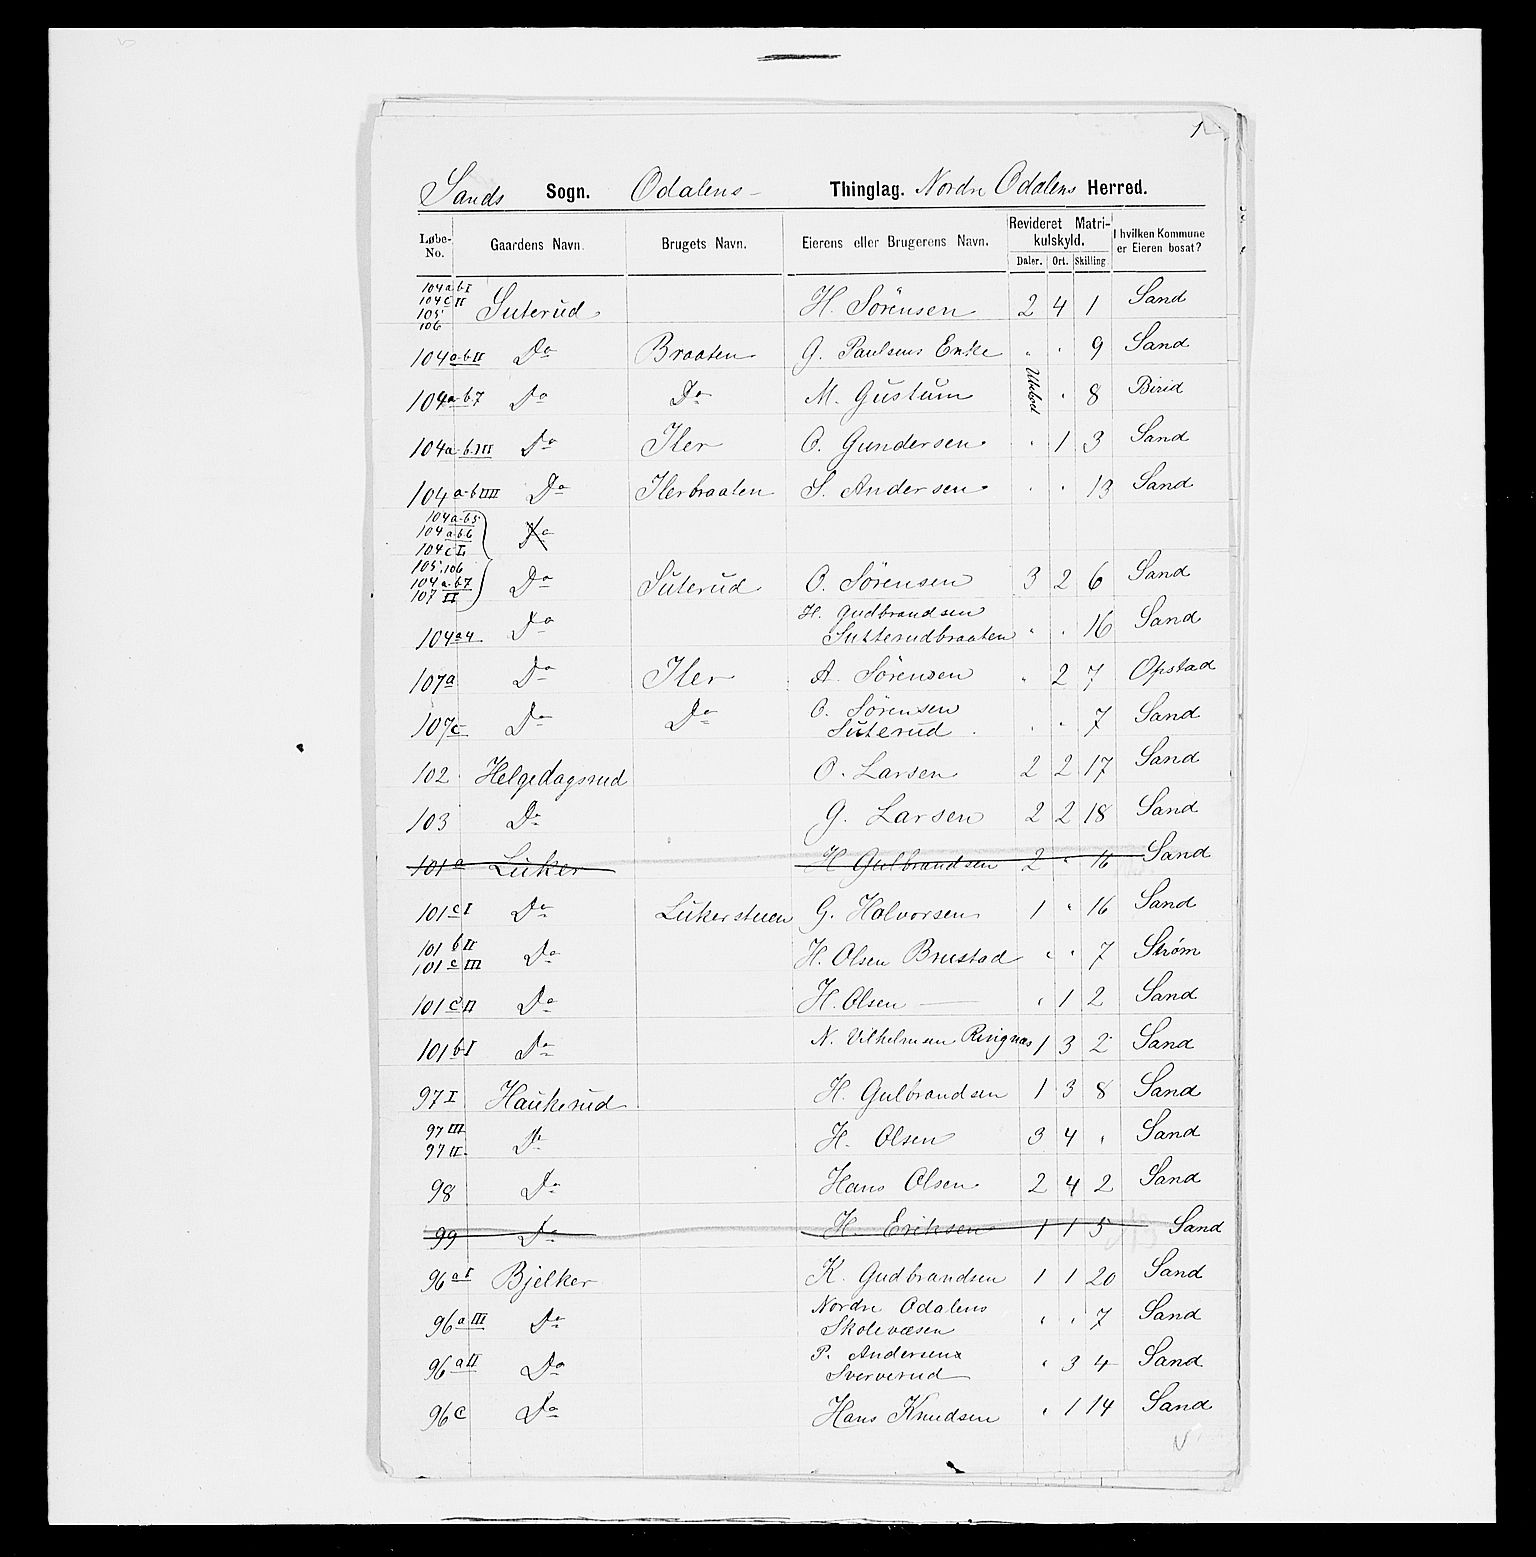 1
Sands Sogn. Odalens Thinglag. Nordre Odalens Herred.
Løbe-No. Gaardens Navn. Brugets Navn. Eierens eller Brugerens Navn. Revideret Matrikulskyld. I hvilken Kommune er Eieren bosat?
Daler. Ort. Skilling
104 a b I
104 c II
105
106 Suterud H. Sörensen 2 4 1 Sand
104 a-b II Do Braaten G. Paulsens Enke " " 9 Sand
104 a-b 7 Do Do M. Gustum " 8 Birid
104 a-b III Do Iler O. Gundersen " 1 3 Sand
104 a-b IIII Do Ilerbraaten S. Andersen " " 13 Sand
104 a-b5
104 a b6 Do
104 c I
105. 106
104 a-b7
107 II Do Suterud O. Sörensen 3 2 6 Sand
104 a4 Do H. Gudbrandsen
Sutterudbraaten " " 16 Sand
107 a Do Iler A. Sörensen " 2 7 Opstad
107 c Do Do O. Sörensen
Suterud " " 7 Sand
102 Helgedagsrud O. Larsen 2 2 17 Sand
103 Do G. Larsen 2 2 18 Sand
101 a Lüker H Gulbrandsen 2 " 16 Sand
101 c I Do Lükerstuen G. Halvorsen 1 " 16 Sand
101 b II
101 c III Do H. Olsen Brustad " " 7 Strøm
101 c II Do H. Olsen " 1 2 Sand
101 b I Do N. Vilhelmsen Ringnæs 1 3 2 Sand
97 I Haukerud H. Gulbrandsen 1 3 8 Sand
97 III
97 II Do H. Olsen 3 4 " Sand
98 Do Hans Olsen 2 4 2 Sand
99 Do H. Eriksen 1 1 5 Sand
96 a I Bjelker K. Gudbrandsen 1 1 20 Sand
96 a III Do Nordre Odalens
Skolevæsen " " 7 Sand
96 a II Do P. Andersen
Sververud " 3 4 Sand
96 c Do Hans Knudsen " 1 14 Sand